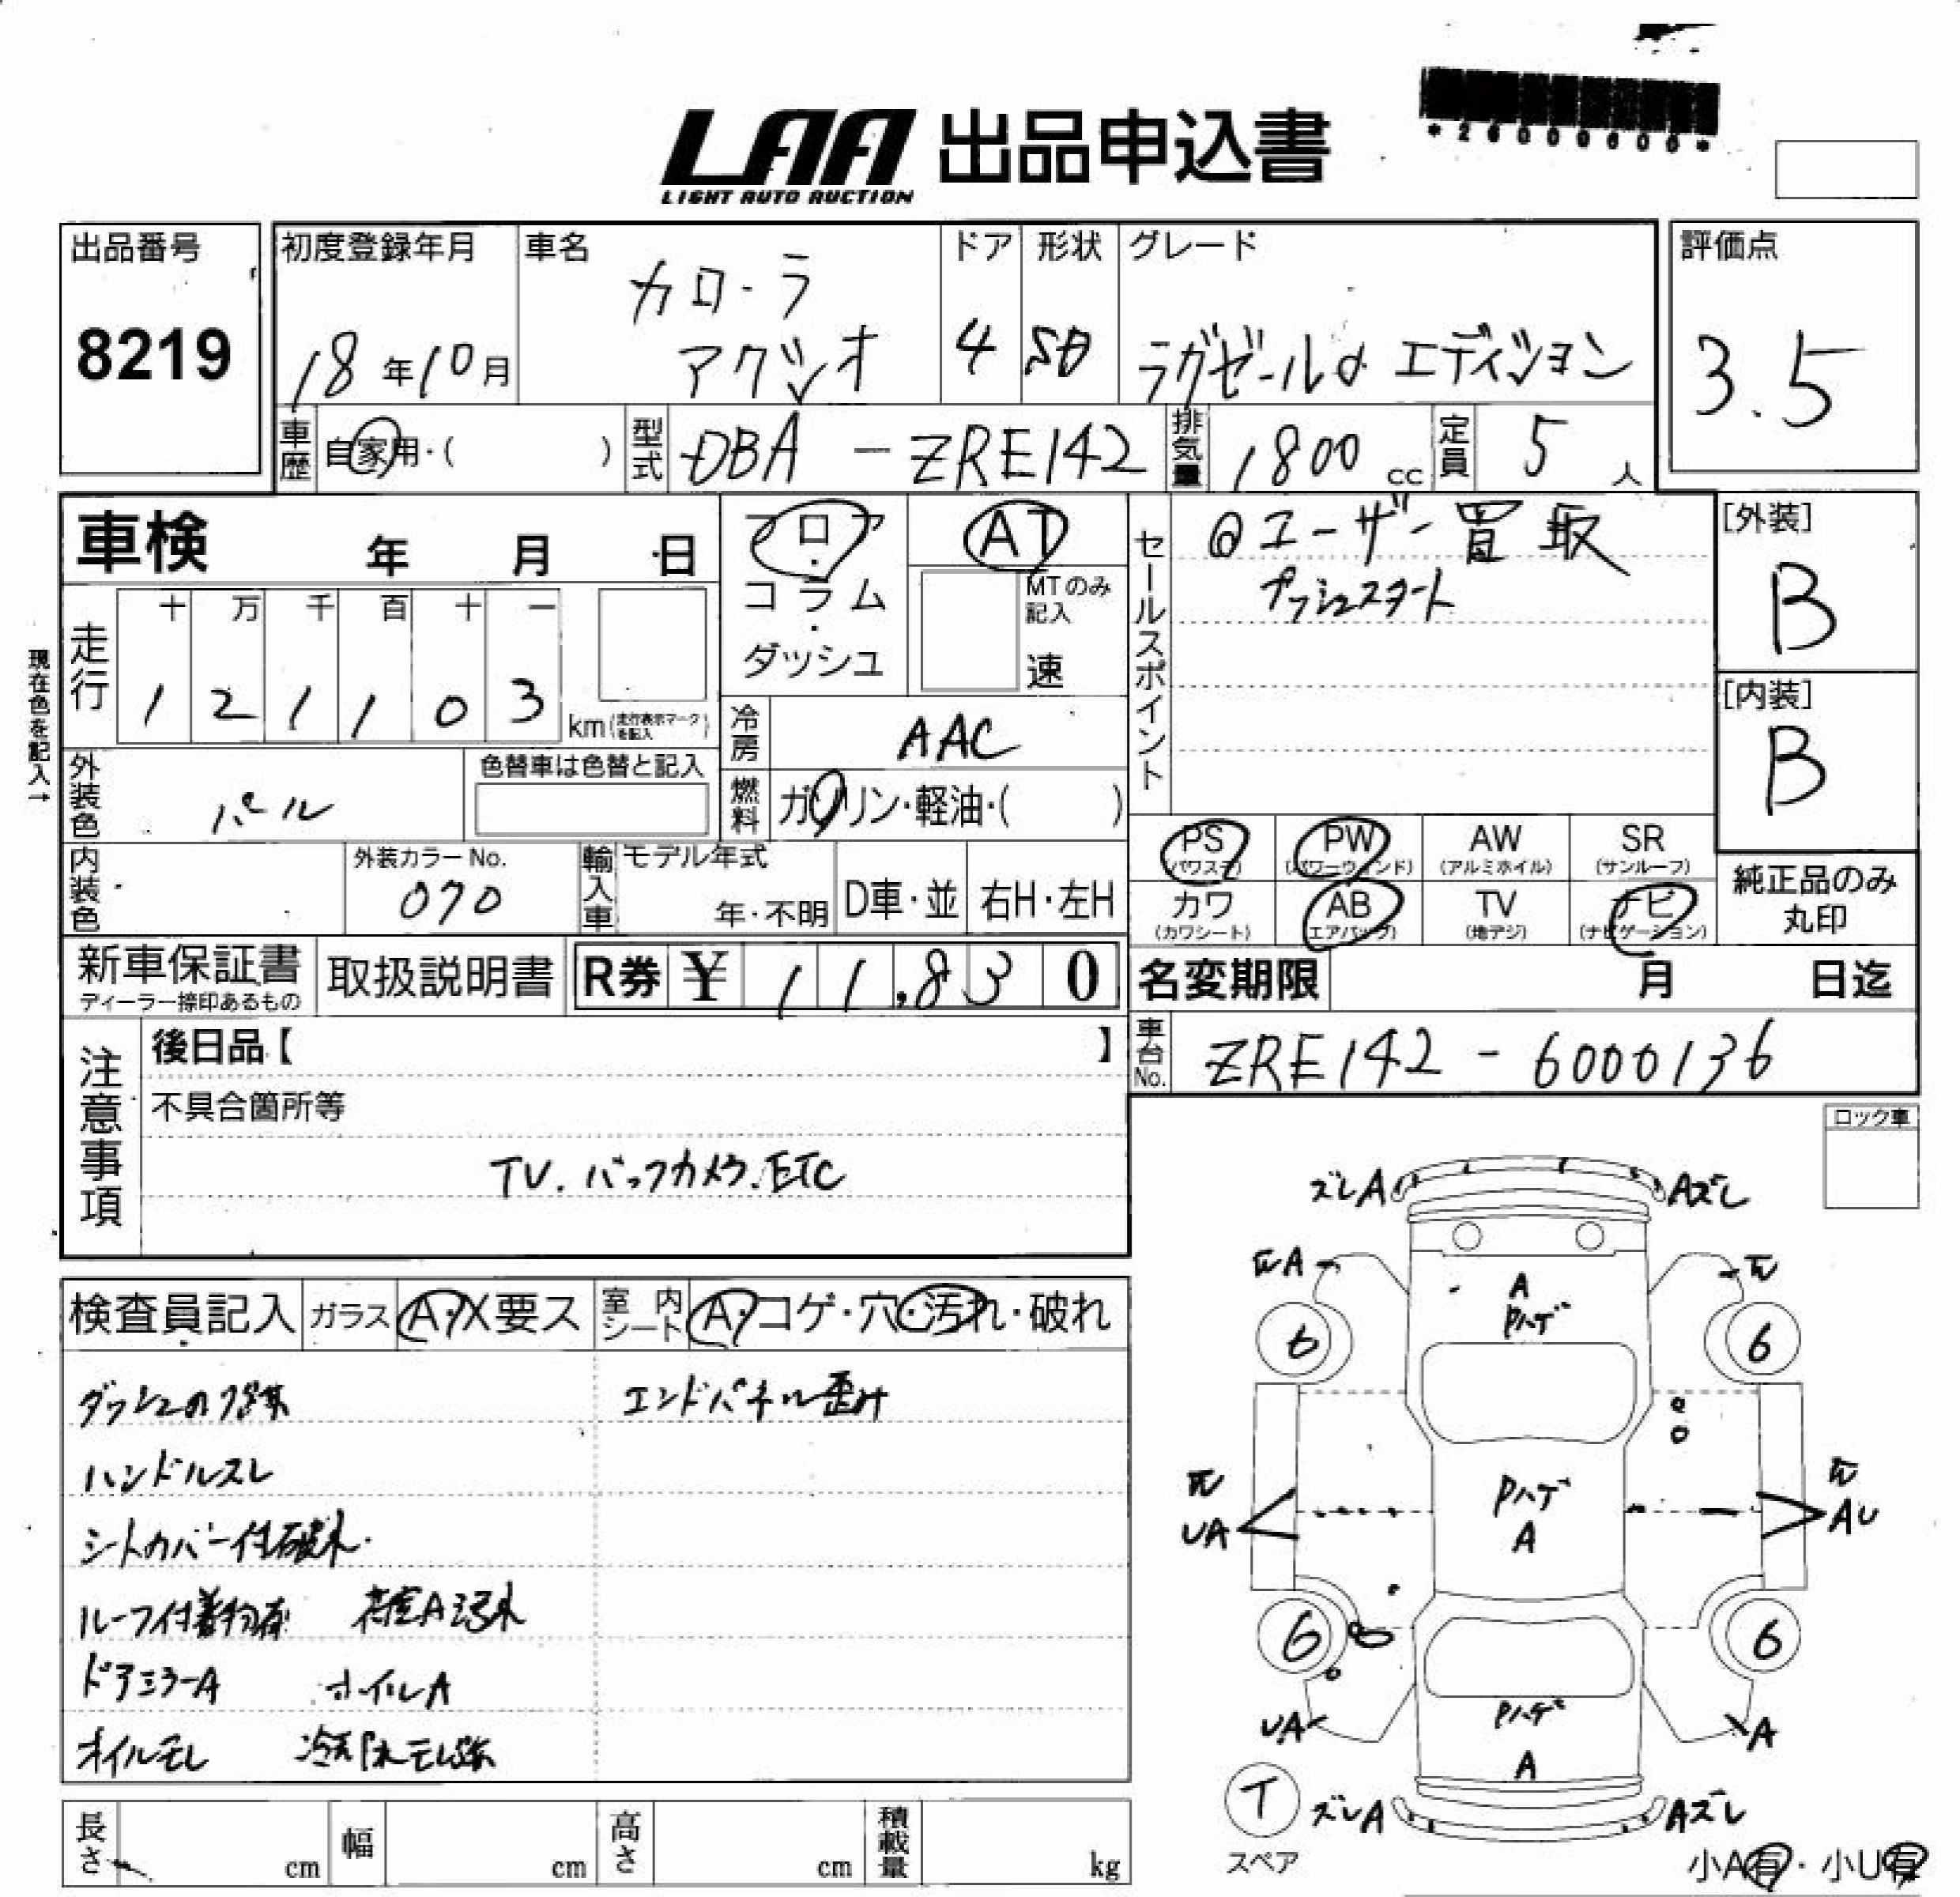 *26000600*
LAA 出品申込書
LIGHT AUTO AUCTION
出品番号
8219
初度登録年月
18年10月
車名
カローラ
アクシオ
ドア
4
形状
SD
グレード
ラグゼールα エディション
評価点
3.5
車歴
自家用・( )
型式
DBA-ZRE142
排気量
1800 cc
定員
5 人
車検 年 月 日
フロア・コラム・ダッシュ
AT
MTのみ記入
速
セールスポイント
◎ユーザー買取
プッシュスタート
[外装]
B
[内装]
B
現在色を記入→
走行
十 万 千 百 十 一
1 2 1 1 0 3 km (走行表示マークを記入)
冷房
AAC
外装色
パール
色替車は色替と記入
燃料
ガソリン・軽油・( )
内装色
外装カラーNo.
070
輸入車
モデル年式
年・不明
D車・並
右H・左H
PS (パワステ)
PW (パワーウィンド)
AW (アルミホイル)
SR (サンルーフ)
カワ (カワシート)
AB (エアバック)
TV (地デジ)
ナビ (ナビゲーション)
純正品のみ
丸印
新車保証書
ディーラー捺印あるもの
取扱説明書
R券 ¥ 11,830
名変期限 月 日迄
車台No.
ZRE142-6000136
注意事項
後日品【 】
不具合箇所等
TV.バックカメラ.ETC
ロック車
検査員記入
ガラス
A・X要ス
室内シート
A・コゲ・穴・汚れ・破れ
エンドパネル歪み
ハンドルスレ
シートカバー付破れ
ルーフ付着物有 荷室A汚れ
ドアミラーA ホイルA
オイルモレ 冷却水モレ跡
ズレA
Aズレ
A
Pハゲ
6
6
Pハゲ
A
UA
AU
6
6
UA
A
Pハゲ
A
T
スペア
ズレA
Aズレ
小A有・小U有
長さ cm
幅 cm
高さ cm
積載量 kg